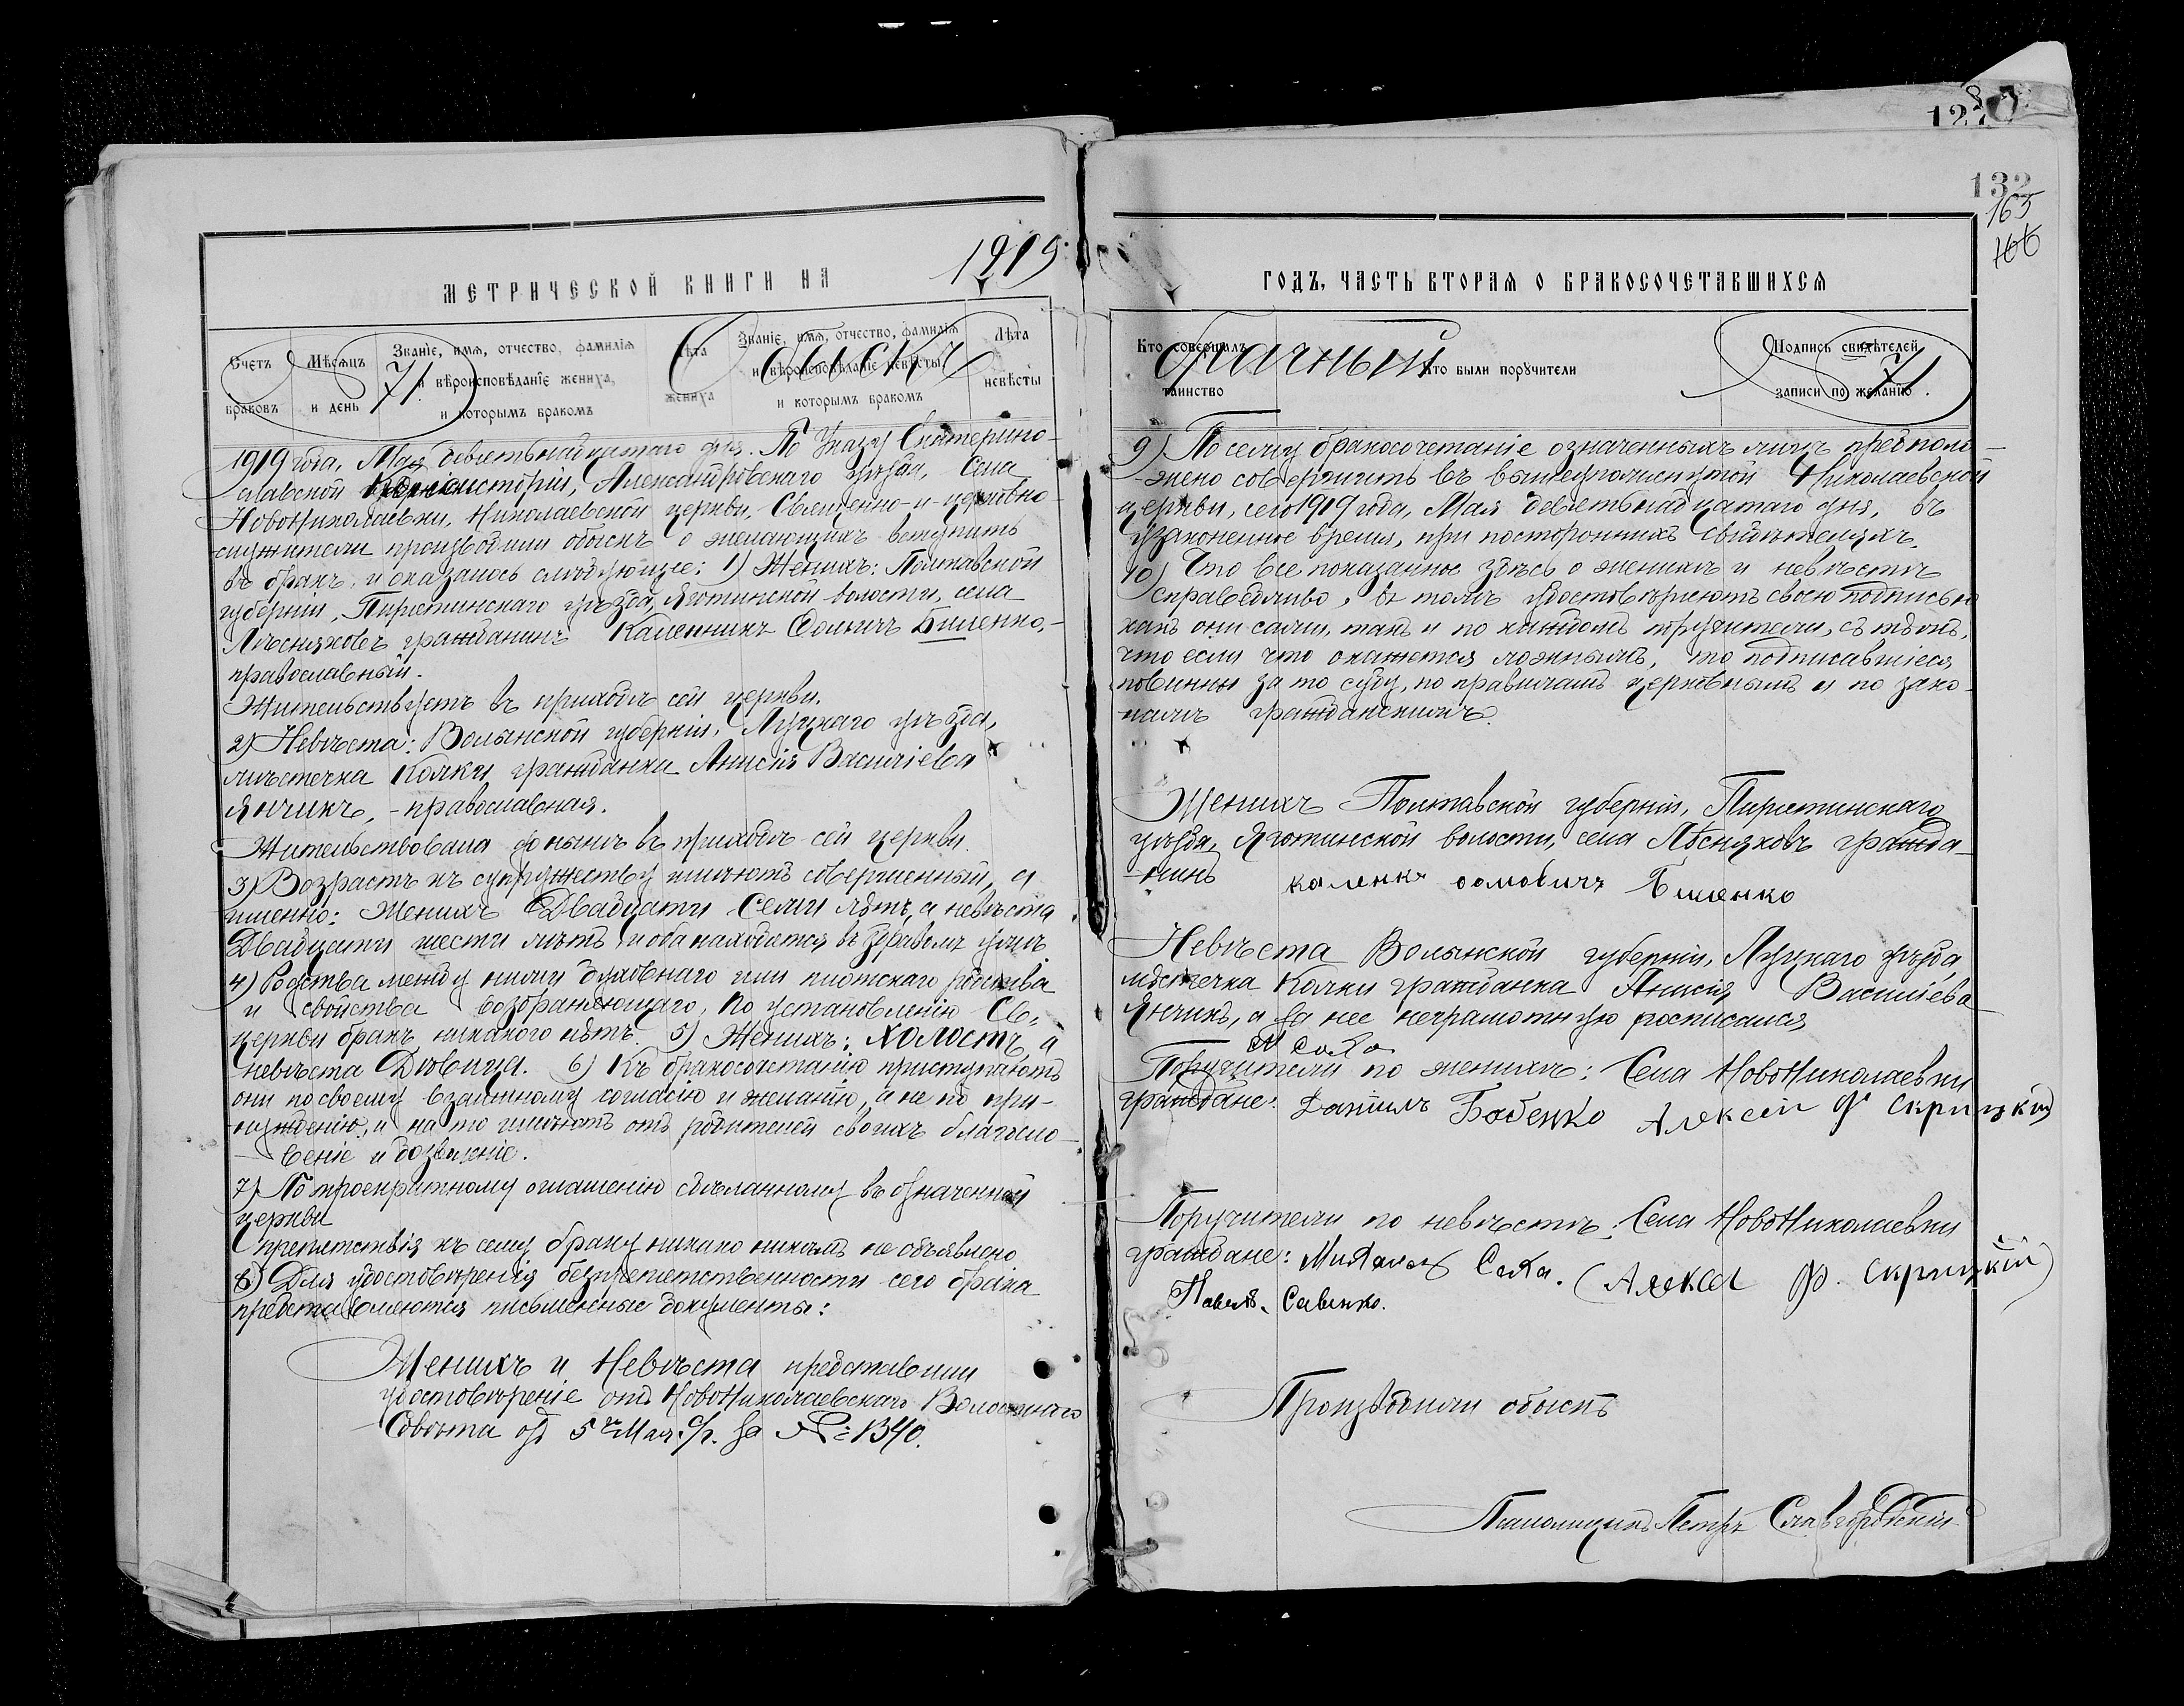 128
127
132
165
166
МЕТРИЧЕСКОЙ КНИГИ НА 1919
Счетъ браковъ
Мѣсяцъ и день
Званіе, имя, отчество, фамилія и вѣроисповѣданіе жениха, и которымъ бракомъ
Лѣта жениха
Званіе, имя, отчество, фамилія и вѣроисповѣданіе невѣсты и которымъ бракомъ
Лѣта невѣсты
71. Обыскъ
1919 года, Мая девятьнадцатаго дня. По Указу Екатерино-
славской Консисторіи, Александровскаго уѣзда, Села
НовоНиколаевки, Николаевской церкви, Священно-и-церковно-
служители производили обыскъ о желающихъ вступить
въ бракъ, и оказалось слѣдующее: 1) Женихъ: Полтавской
губерніи, Пирятинскаго уѣзда, Яготинской волости, села
Лѣсняковъ гражданинъ Каленикъ Ѳомичъ Биленко,-
православный.
Жительствуетъ въ приходѣ сей церкви.
2) Невѣста: Волынской губерніи, Луцкаго уѣзда,
мѣстечка Колки гражданка Анисія Василіева
Янчикъ, - православная.
Жительствовала донынѣ въ приходѣ сей церкви.
3) Возрастъ къ супружеству имѣютъ совершенный, а
именно: Женихъ Двадцати семи лѣтъ, а невѣста
Двадцати шести лѣтъ и оба находятся въ здравомъ умѣ
4) Родства между ними духовнаго или плотскаго родства
и свойства возбраняющаго, по установленію Св.
церкви бракъ никакого нѣтъ. 5) Женихъ: холостъ, а
невѣста Дѣвица. 6) Къ бракосочетанію приступаютъ
они по своему взаимному согласію и желанію, а не по при-
нужденію, и на то имѣютъ отъ родителей своихъ благосло-
веніе и дозволеніе.
7) По троекратному оглашенію сдѣланному въ означенной
церкви
препятствія къ сему браку никако никѣмъ не объявлено
8) Для удостовѣренія безпрепятственности сего брака
представляются письменные документы:
Женихъ и Невѣста представили
удостовѣреніе отъ НовоНиколаевскаго Волостнаго
Совѣта отъ 5го Мая с/г. за № 1340.
ГОДЪ, ЧАСТЬ ВТОРАЯ О БРАКОСОЧЕТАВШИХСЯ
Кто совершалъ таинство
Кто были поручители
Подпись свидѣтелей записи по желанію
брачный 71.
9) По сему бракосочетаніе означенныхъ лицъ предполо-
жено совершить въ вышеупомянутой Николаевской
церкви, сего 1919 года, Мая девятьнадцатаго дня, въ
узаконенное время, при постороннихъ свидѣтеляхъ.
10) Что все показанное здѣсь о женихѣ и невѣстѣ
справедливо, въ томъ удостовѣряютъ своею подписью
какъ они сами, такъ и по каждомъ поручители, съ тѣмъ,
что если что окажется ложнымъ, то подписавшіеся
повинны за то суду, по правиламъ церковнымъ и по зако-
намъ гражданскимъ.
Женихъ Полтавской губерніи, Пирятинскаго
уѣзда, Яготинской волости, села Лѣсняковъ гражда-
нинъ каленкъ ѳомовичъ Биленко
Невѣста Волынской губерніи, Луцкаго уѣзда
мѣстечка Колки гражданка Анисія Василіева
Янчикъ, а за нее неграмотную росписался
М Саха
Поручители по женихѣ: Села НовоНиколаевки
граждане: Даніилъ Бабенко Алексѣй Ф Скрицкій
Поручители по невѣстѣ: Села НовоНиколаевки
граждане: Михаилъ Саха. (Алексѣ Ф. Скрицкій)
Павелъ Савенко.
Производили обыскъ
Псаломщикъ Петръ Славгородскій